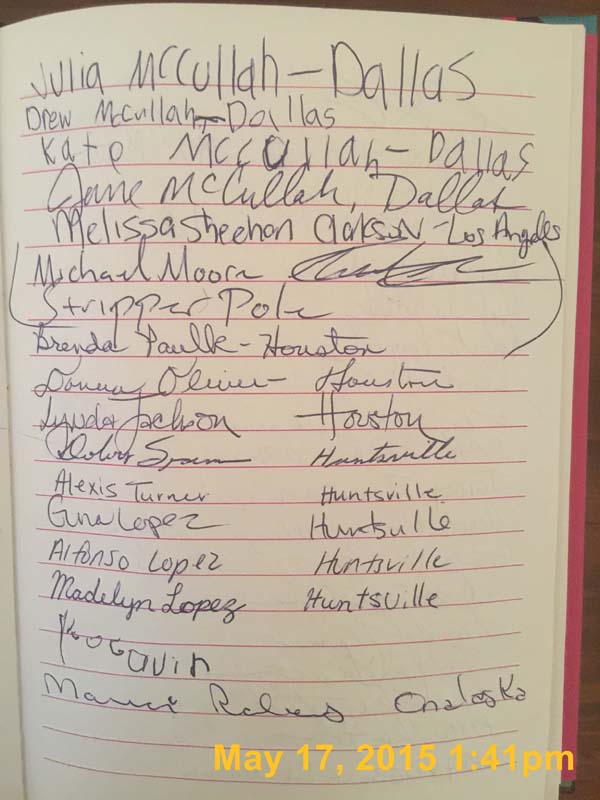 Julia McCullah - Dallas
Drew McCullah - Dallas
Kate McCullah - Dallas
Jane McCullah, Dallas
Melissa Sheehan Clarkson - Los Angeles
Michael Moore
Stripper Pole
Brenda Paulk - Houston
Houston
Lynda Jackson Houston
Huntsville
Alexis Turner Huntsville
Gina Lopez Huntsville
Alfonso Lopez Huntsville
Madelyn Lopez Huntsville
Onalaska
May 17, 2015 1:41pm